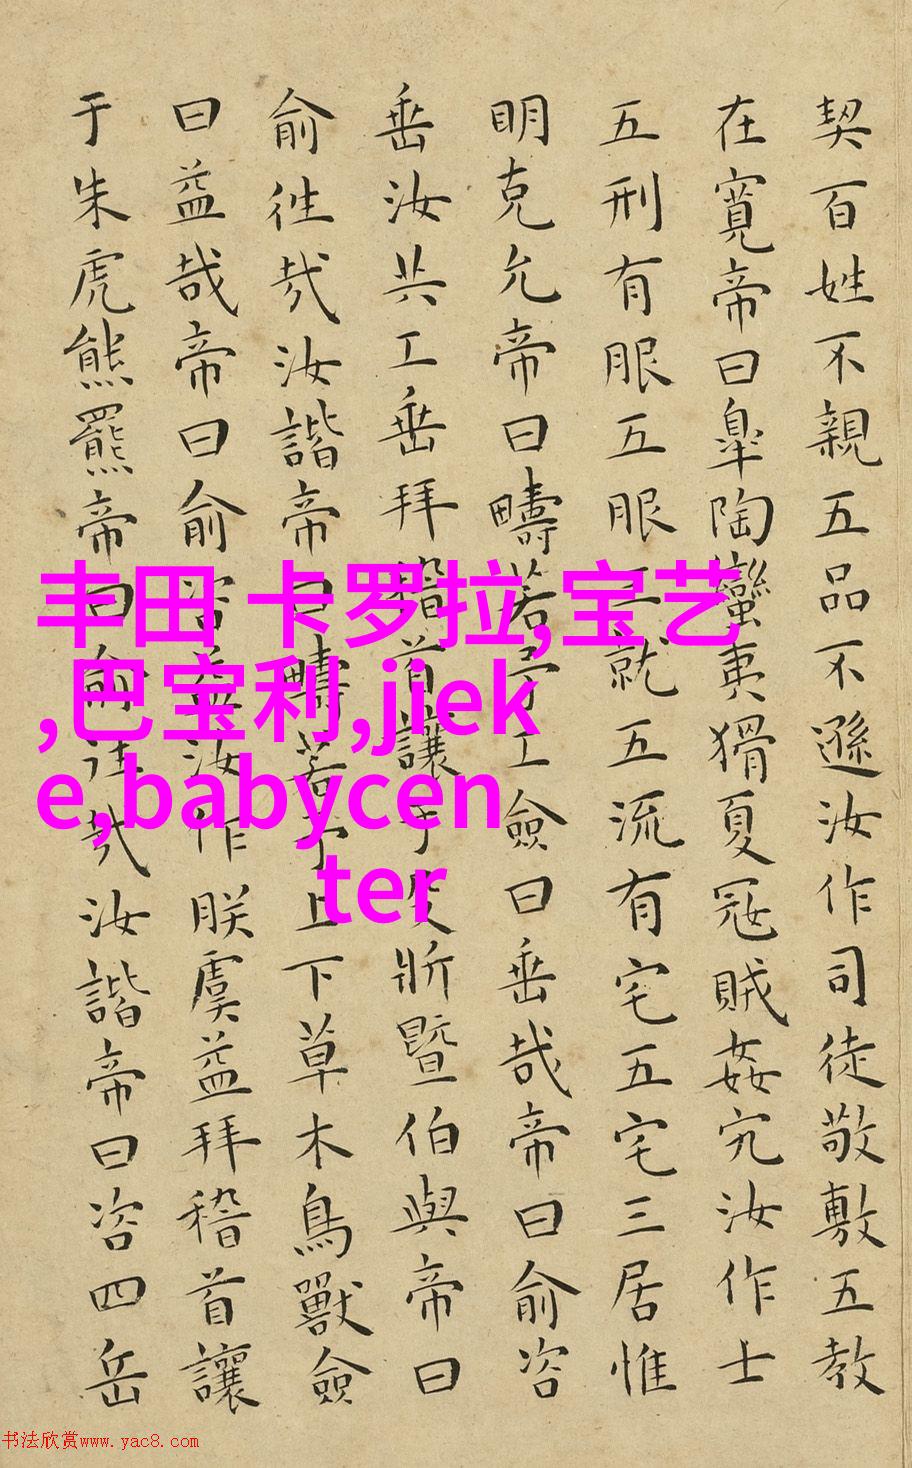 契百姓不親五品不遜汝作司徒敬敷五教
在寬帝曰皐陶蠻夷猾夏寇賊姦宄汝作士
五刑有服五服三就五流有宅五宅三居惟
明克允帝曰疇若予工僉曰垂哉帝曰俞咨
垂汝共工垂拜稽首讓于殳斨暨伯與帝曰
俞往哉汝諧帝曰疇若予上下草木鳥獸僉
曰益哉帝曰俞咨益汝作朕虞益拜稽首讓
于朱虎熊羆帝曰俞往哉汝諧帝曰咨四岳
丰田 卡罗拉,宝艺
,巴宝利,jiek
e,babycen
ter
书法欣赏www.yac8.com